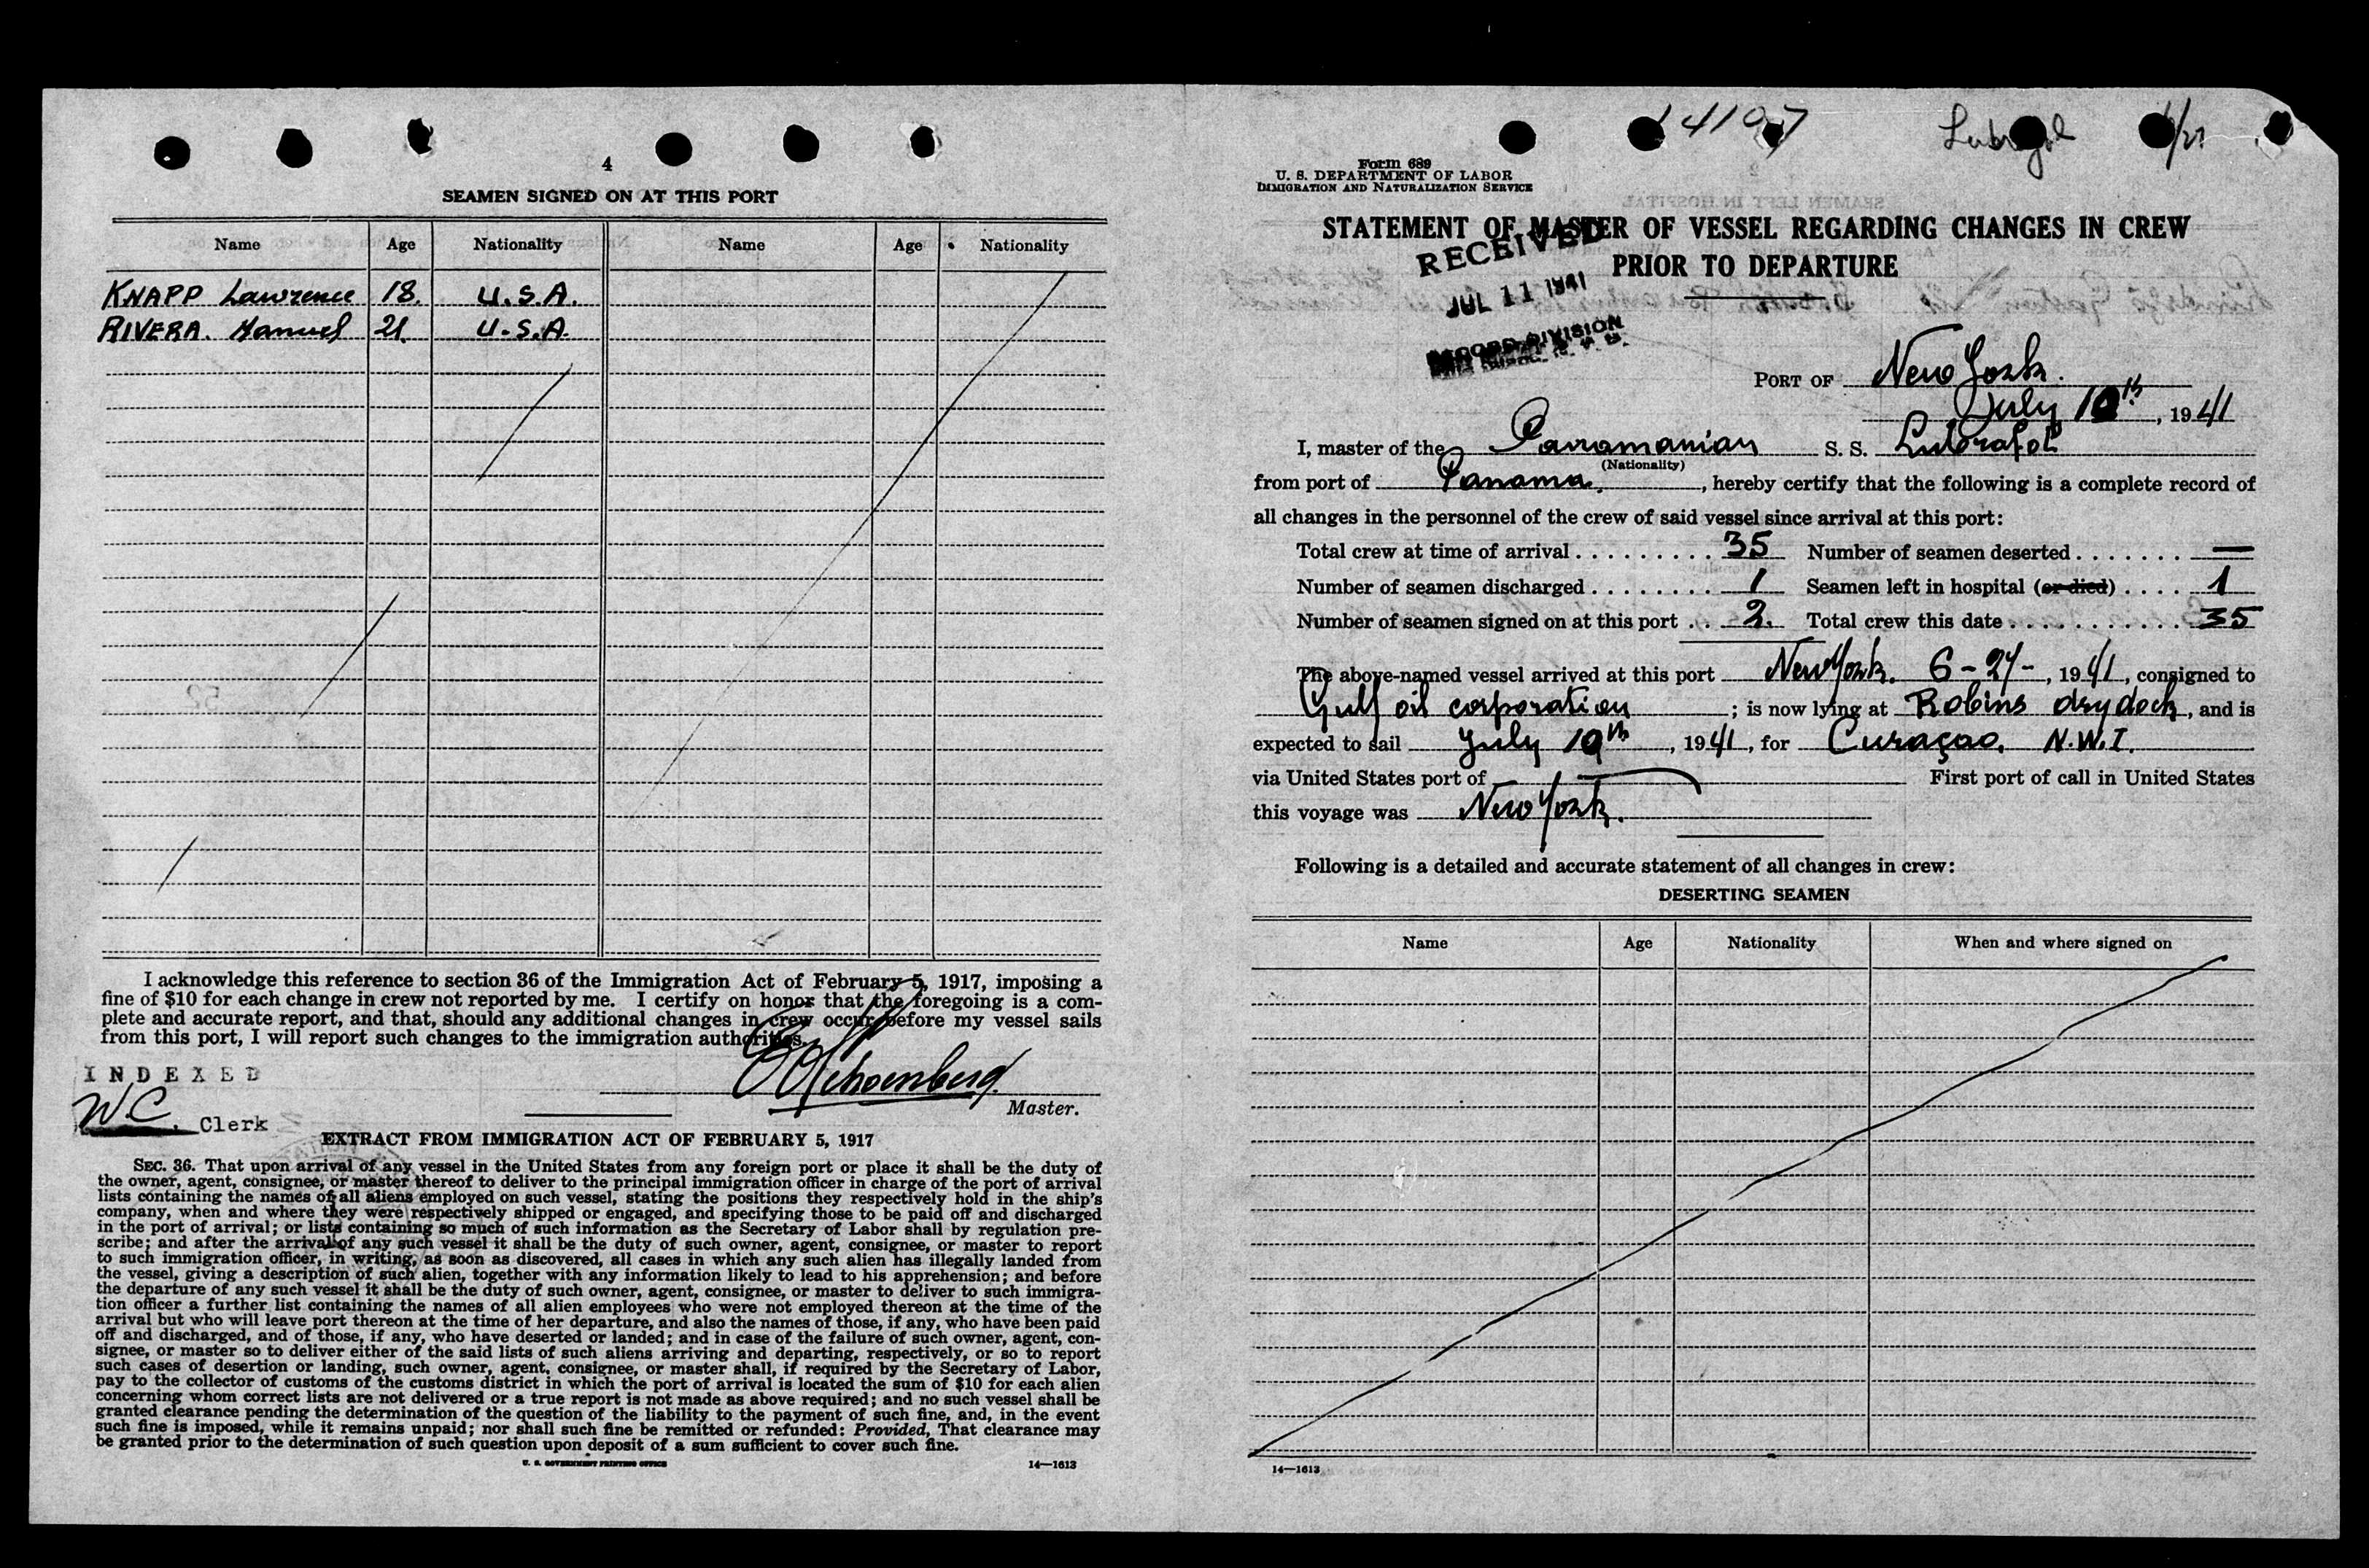 4
SEAMEN SIGNED ON AT THIS PORT
Name Age Nationality Name Age Nationality
KNAPP Lawrence 18. U.S.A.
RIVERA. Manuel 21. U.S.A.
I acknowledge this reference to section 36 of the Immigration Act of February 5, 1917, imposing a
fine of $10 for each change in crew not reported by me. I certify on honor that the foregoing is a com-
plete and accurate report, and that, should any additional changes in crew occur before my vessel sails
from this port, I will report such changes to the immigration authorities.
INDEXED
Schoenberg.
Master.
W.C. Clerk
EXTRACT FROM IMMIGRATION ACT OF FEBRUARY 5, 1917
SEC. 36. That upon arrival of any vessel in the United States from any foreign port or place it shall be the duty of
the owner, agent, consignee, or master thereof to deliver to the principal immigration officer in charge of the port of arrival
lists containing the names of all aliens employed on such vessel, stating the positions they respectively hold in the ship's
company, when and where they were respectively shipped or engaged, and specifying those to be paid off and discharged
in the port of arrival; or lists containing so much of such information as the Secretary of Labor shall by regulation pre-
scribe; and after the arrival of any such vessel it shall be the duty of such owner, agent, consignee, or master to report
to such immigration officer, in writing, as soon as discovered, all cases in which any such alien has illegally landed from
the vessel, giving a description of such alien, together with any information likely to lead to his apprehension; and before
the departure of any such vessel it shall be the duty of such owner, agent, consignee, or master to deliver to such immigra-
tion officer a further list containing the names of all alien employees who were not employed thereon at the time of the
arrival but who will leave port thereon at the time of her departure, and also the names of those, if any, who have been paid
off and discharged, and of those, if any, who have deserted or landed; and in case of the failure of such owner, agent, con-
signee, or master so to deliver either of the said lists of such aliens arriving and departing, respectively, or so to report
such cases of desertion or landing, such owner, agent, consignee, or master shall, if required by the Secretary of Labor,
pay to the collector of customs of the customs district in which the port of arrival is located the sum of $10 for each alien
concerning whom correct lists are not delivered or a true report is not made as above required; and no such vessel shall be
granted clearance pending the determination of the question of the liability to the payment of such fine, and, in the event
such fine is imposed, while it remains unpaid; nor shall such fine be remitted or refunded: Provided, That clearance may
be granted prior to the determination of such question upon deposit of a sum sufficient to cover such fine.
U. S. GOVERNMENT PRINTING OFFICE 14—1613
14107
Form 689
U. S. DEPARTMENT OF LABOR
IMMIGRATION AND NATURALIZATION SERVICE
STATEMENT OF MASTER OF VESSEL REGARDING CHANGES IN CREW
PRIOR TO DEPARTURE
RECEIVED
JUL 11 1941
RECORD DIVISION
PORT OF New York.
July 10th, 1941
I, master of the Panamanian S. S. Lubrafol
(Nationality)
from port of Panama., hereby certify that the following is a complete record of
all changes in the personnel of the crew of said vessel since arrival at this port:
Total crew at time of arrival......... 35 Number of seamen deserted....... —
Number of seamen discharged........ 1 Seamen left in hospital (or died).... 1
Number of seamen signed on at this port.. 2. Total crew this date........... 35
The above-named vessel arrived at this port New York. 6-24-, 1941, consigned to
Gulf oil corporation; is now lying at Robins drydock, and is
expected to sail July 10th, 1941, for Curaçao. N.W.I.
via United States port of — First port of call in United States
this voyage was New York.
Following is a detailed and accurate statement of all changes in crew:
DESERTING SEAMEN
Name Age Nationality When and where signed on
14—1613